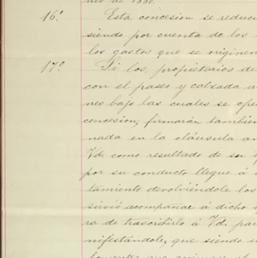 16.ª Esta concesion se reduc
siendo por cuenta de los
los gastos que se originen
17.ª Si los propietarios de
con el paseo y calzada a
nes bajo las cuales se ope
concesion, firmarán tambien
nada en la cláusula an
Vd. como resultado de su i
por su conducto llegue á
tamiento devolviéndole los
sirvió acompañar á dicho
ra de trascribirlo á Vd. pa
nifestándole, que siendo